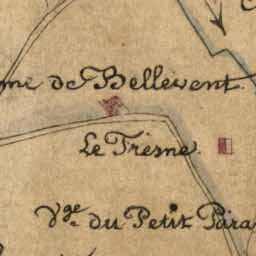 me de Bellevent.
Le Fresne.
Vge. du Petit Para